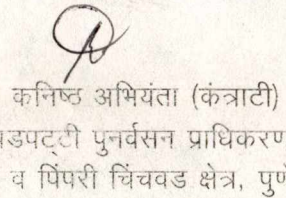 कनिष्ठ अभियंता (कंत्राटी)
डपट्टी पुनर्वसन प्राधिकरण
व पिंपरी चिंचवड क्षेत्र, पुणे